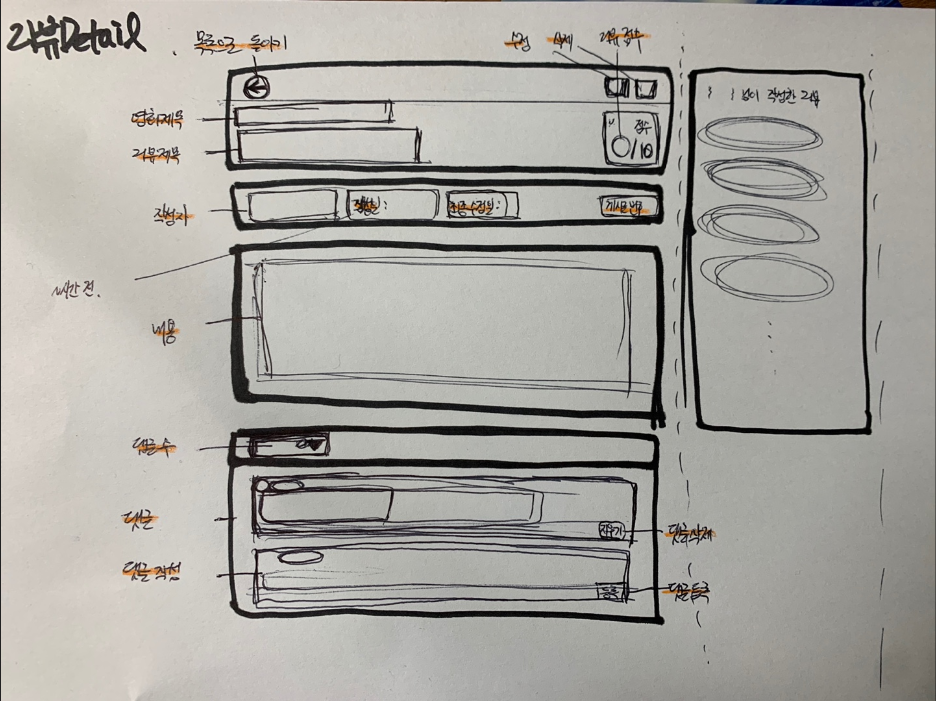 리뷰Detail
목록으로 돌아가기
수정 삭제 리뷰점수
영화제목
리뷰제목
점수
/10
작성자
작성일:
최종수정일:
게시글 번호
~시간 전.
내용
댓글 수
댓글
지우기
댓글삭제
댓글 작성
등록
댓글등록
님이 작성한 리뷰